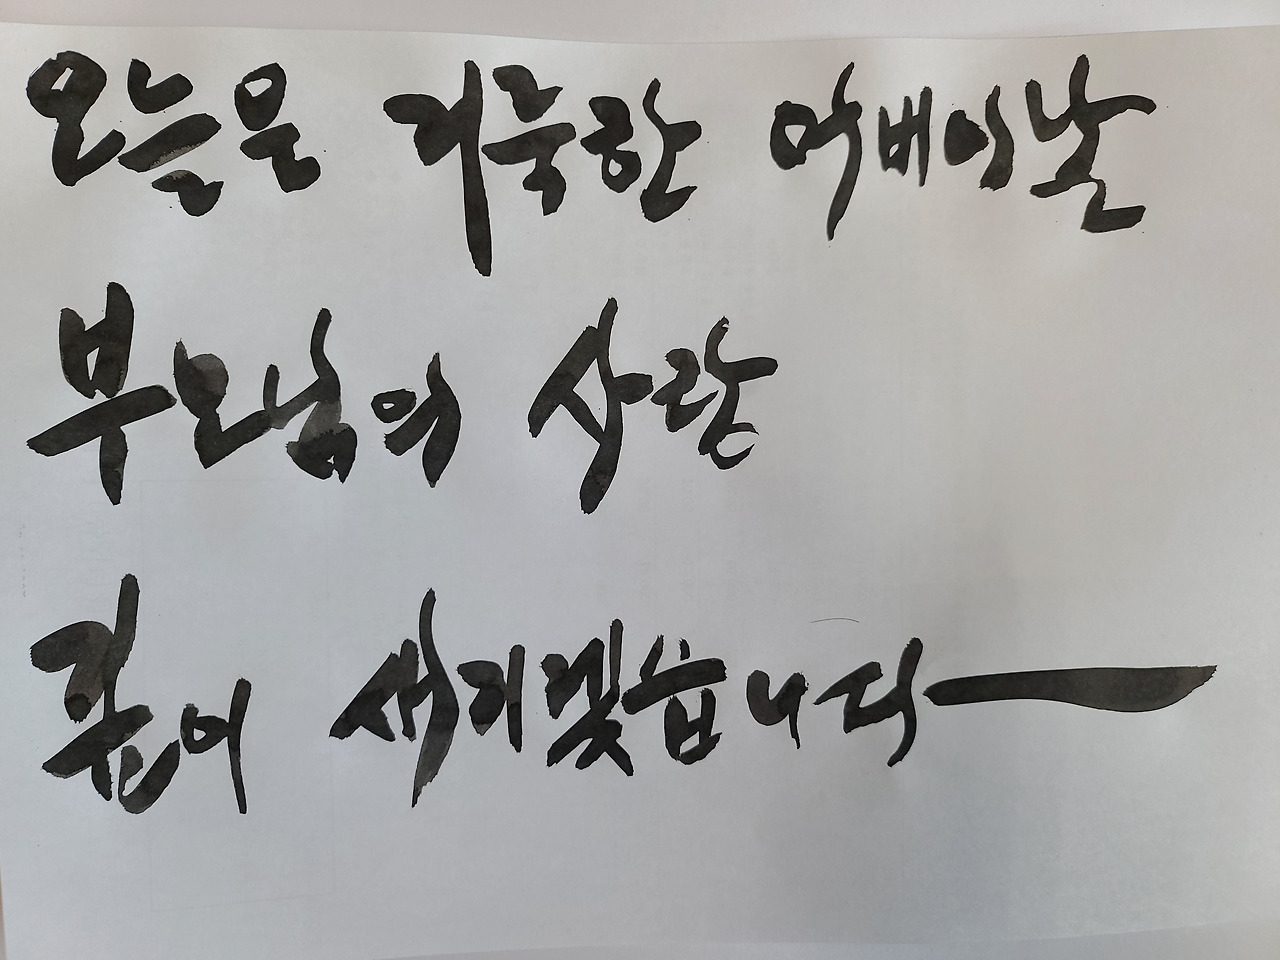 오늘은 거룩한 어버이날
부모님의 사랑
깊이 새기겠습니다